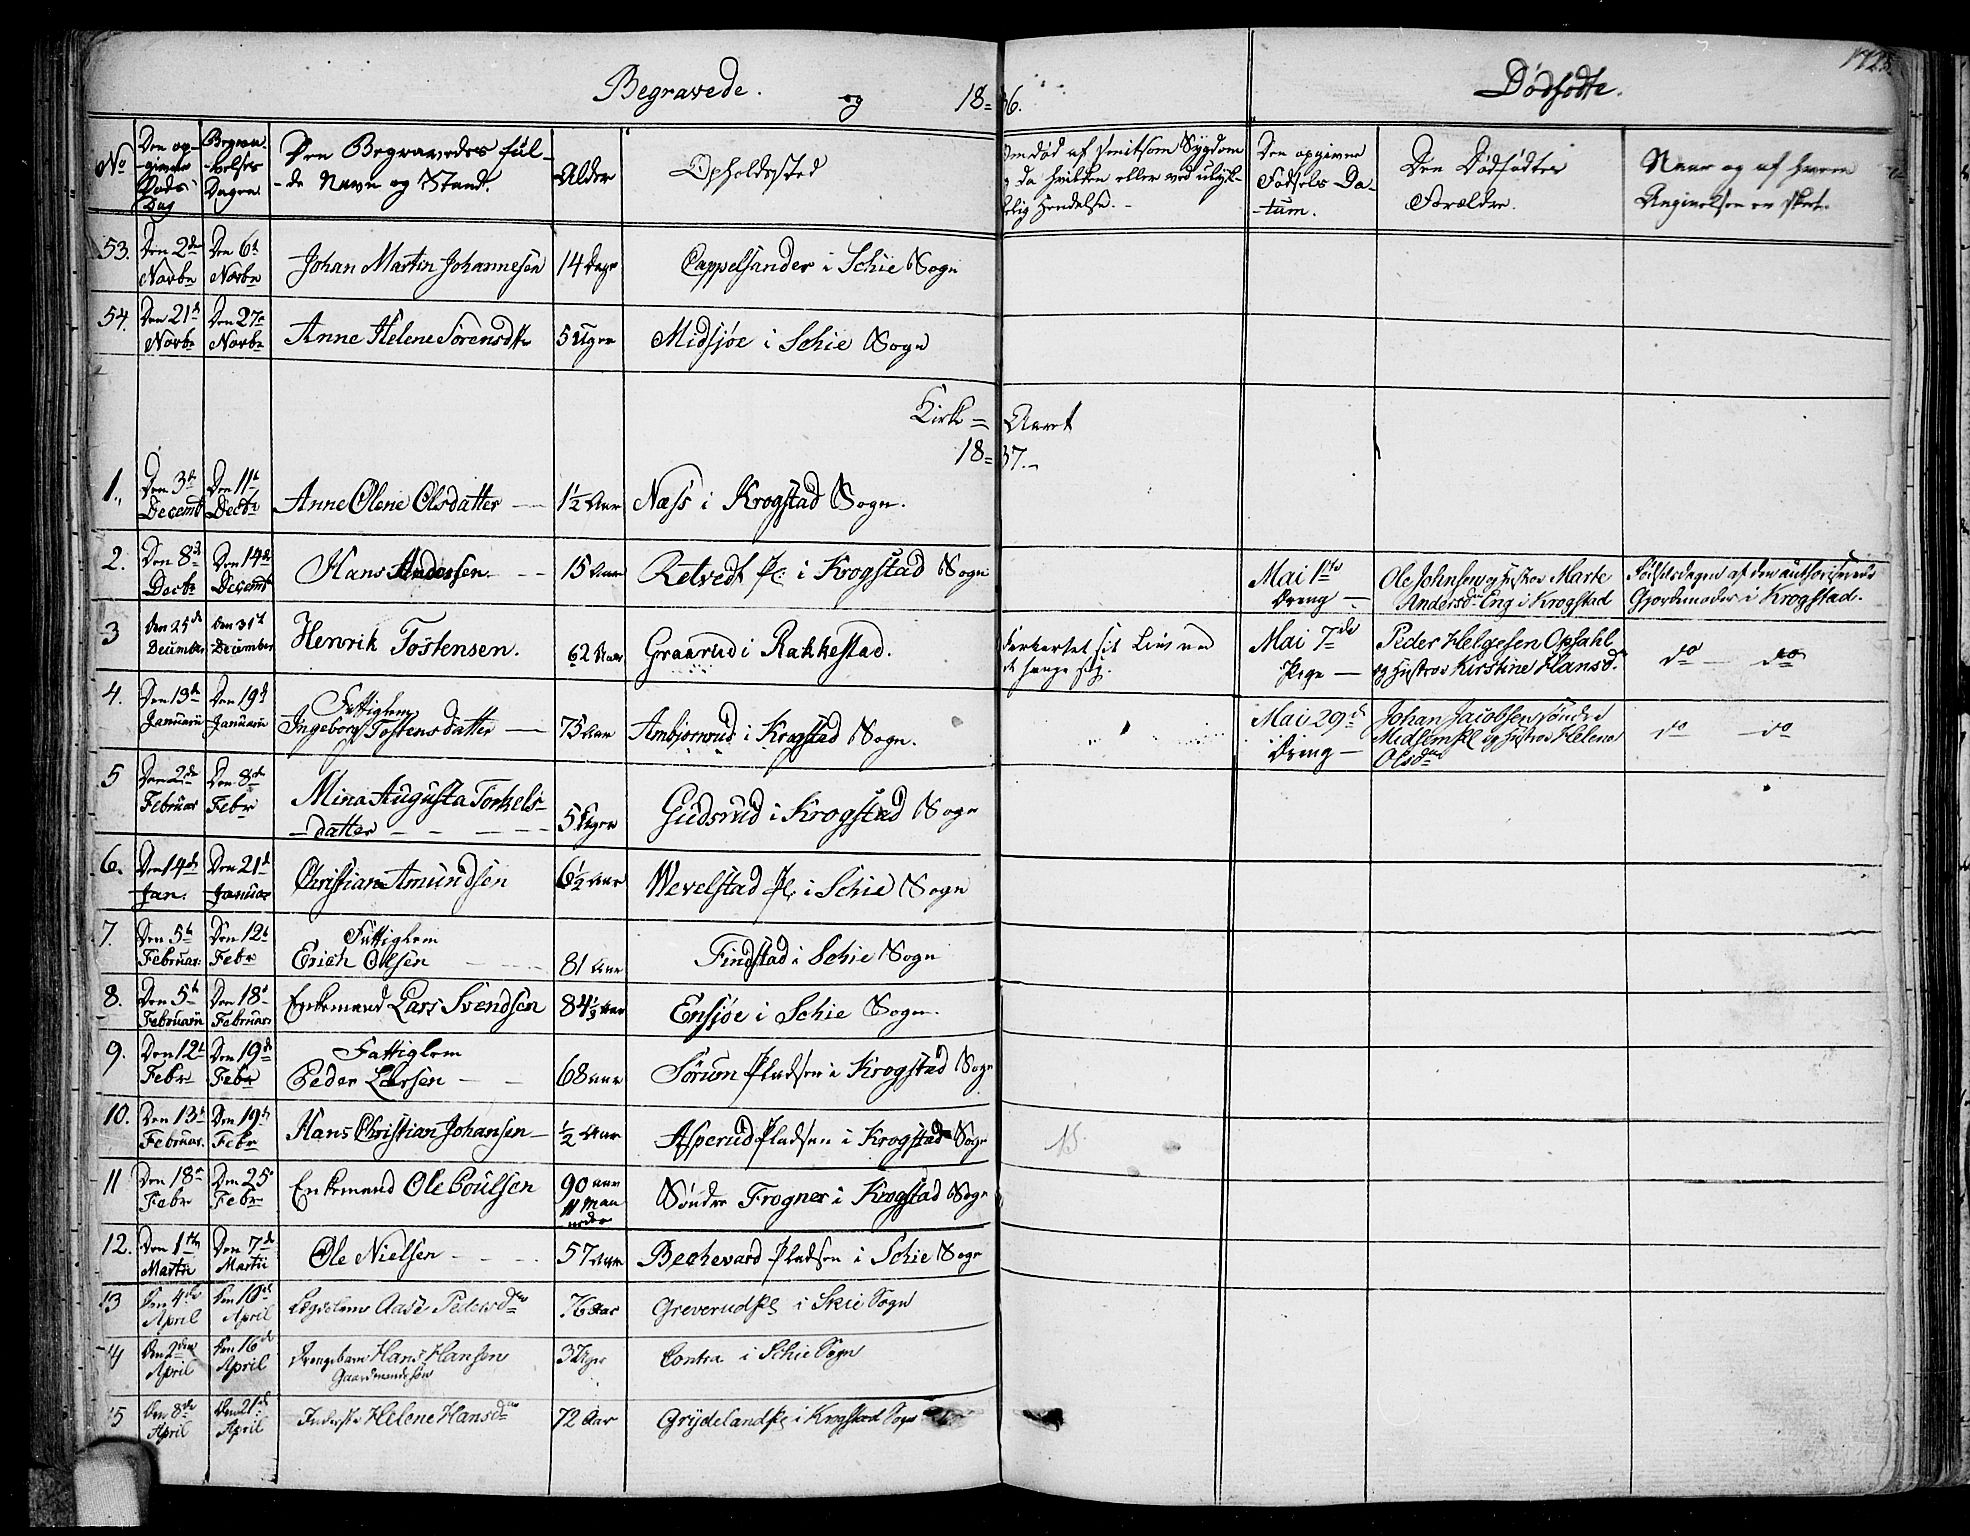 Begravede. og 18=36. Dødfødte.
No
Den op-givne Døds Dag
Begravelses Dagen
Den Begravedes fulde Navn og Stand.
Alder
Opholdssted
Den opgivne Fødsels Datum.
Den Dødfødtes Forældre.
Naar og af hvem Angivelsen er skeet.
53. Den 2de Novbr Den 6te Novbr Johan Martin Johannesen 14 Dage Cappelsander i Schie Sogn
54. Den 21de Novbr Den 27de Novbr Anne Helene Sørensdtr 5 Uger Midsjøe i Schie Sogn
Kirke=Aaret
18=37.
1. Den 3de Decemb Den 11te Decbr Anne Olene Olsdatter 1½ Aar Næss i Krogstad Sogn.
2. Den 8de Decbr Den 14de Decemb Hans Andersen 15 Aar Retvedt Pl: i Krogstad Sogn
Mai 1ste Dreng Ole Johnsen og Hustrue Marte Andersd. Eng i Krogstad Fødselsdagen af den authoriserede Gjordemoder i Krogstad.
3 Den 25de December Den 31te December Henrik Tostensen. 62 Aar Graarud i Rakkestad.
Mai 7de Pige Peder Helgesen Opsahl og Hustrue Kirstine Hansd. do do
4. Den 13de Januarii Den 19de Januarii Fattiglem Ingeborg Tostensdatter 75 Aar Ambjørnrud i Krogstad Sogn.
Mai 29de Dreng Johan Jacobsen søndre Midsem Pl og Hustrue Helene Olsdtr do do
5 Den 2de Februar Den 8de Febr Mina Augusta Torkels-datter 5 Uger Gudsrud i Krogstad Sogn
6. Den 14de Jan. Den 21de Januar Christian Amundsen 6½ Aar Wevelstad Pl. i Schie Sogn
7. Den 5te Februar. Den 12te Febr Fattiglem Erich Olsen 81 Aar Findstad i Schie Sogn
8. Den 5te Februarii Den 18de Februar. Enkemand Lars Svendsen 84½ Aar Ensjøe i Schie Sogn.
9. Den 12te Febr Den 19de Febr Fattiglem Peder Larsen 68 Aar Sørum Pladsen i Krogstad Sogn
10. Den 13de Februar. Den 19de Febr Hans Christian Johansen ½ Aar Asperud Pladsen i Krogstad Sogn
11 Den 18de Febr Den 25de Febr Enkemand Ole Poulsen 90 Aar 11 Maaneder Søndre Frogner i Krogstad Sogn
12. Den 1ste Martii Den 7de Martii Ole Nielsen 57 Aar Bechevard Pladsen i Schie Sogn
13 Den 4de April Den 10de April Aase Pedersdtr 76 Aar Greverud Pl i Skie Sogn
14 Den 2den April Den 16de April Drengebarn Hans Hansen Gaardmandssøn 3 Uger Contra i Schie Sogn
15 Den 8de April Den 21de April Inderste Helene Hansdtr 72 Aar Grydeland Pl i Krogstad Sogn